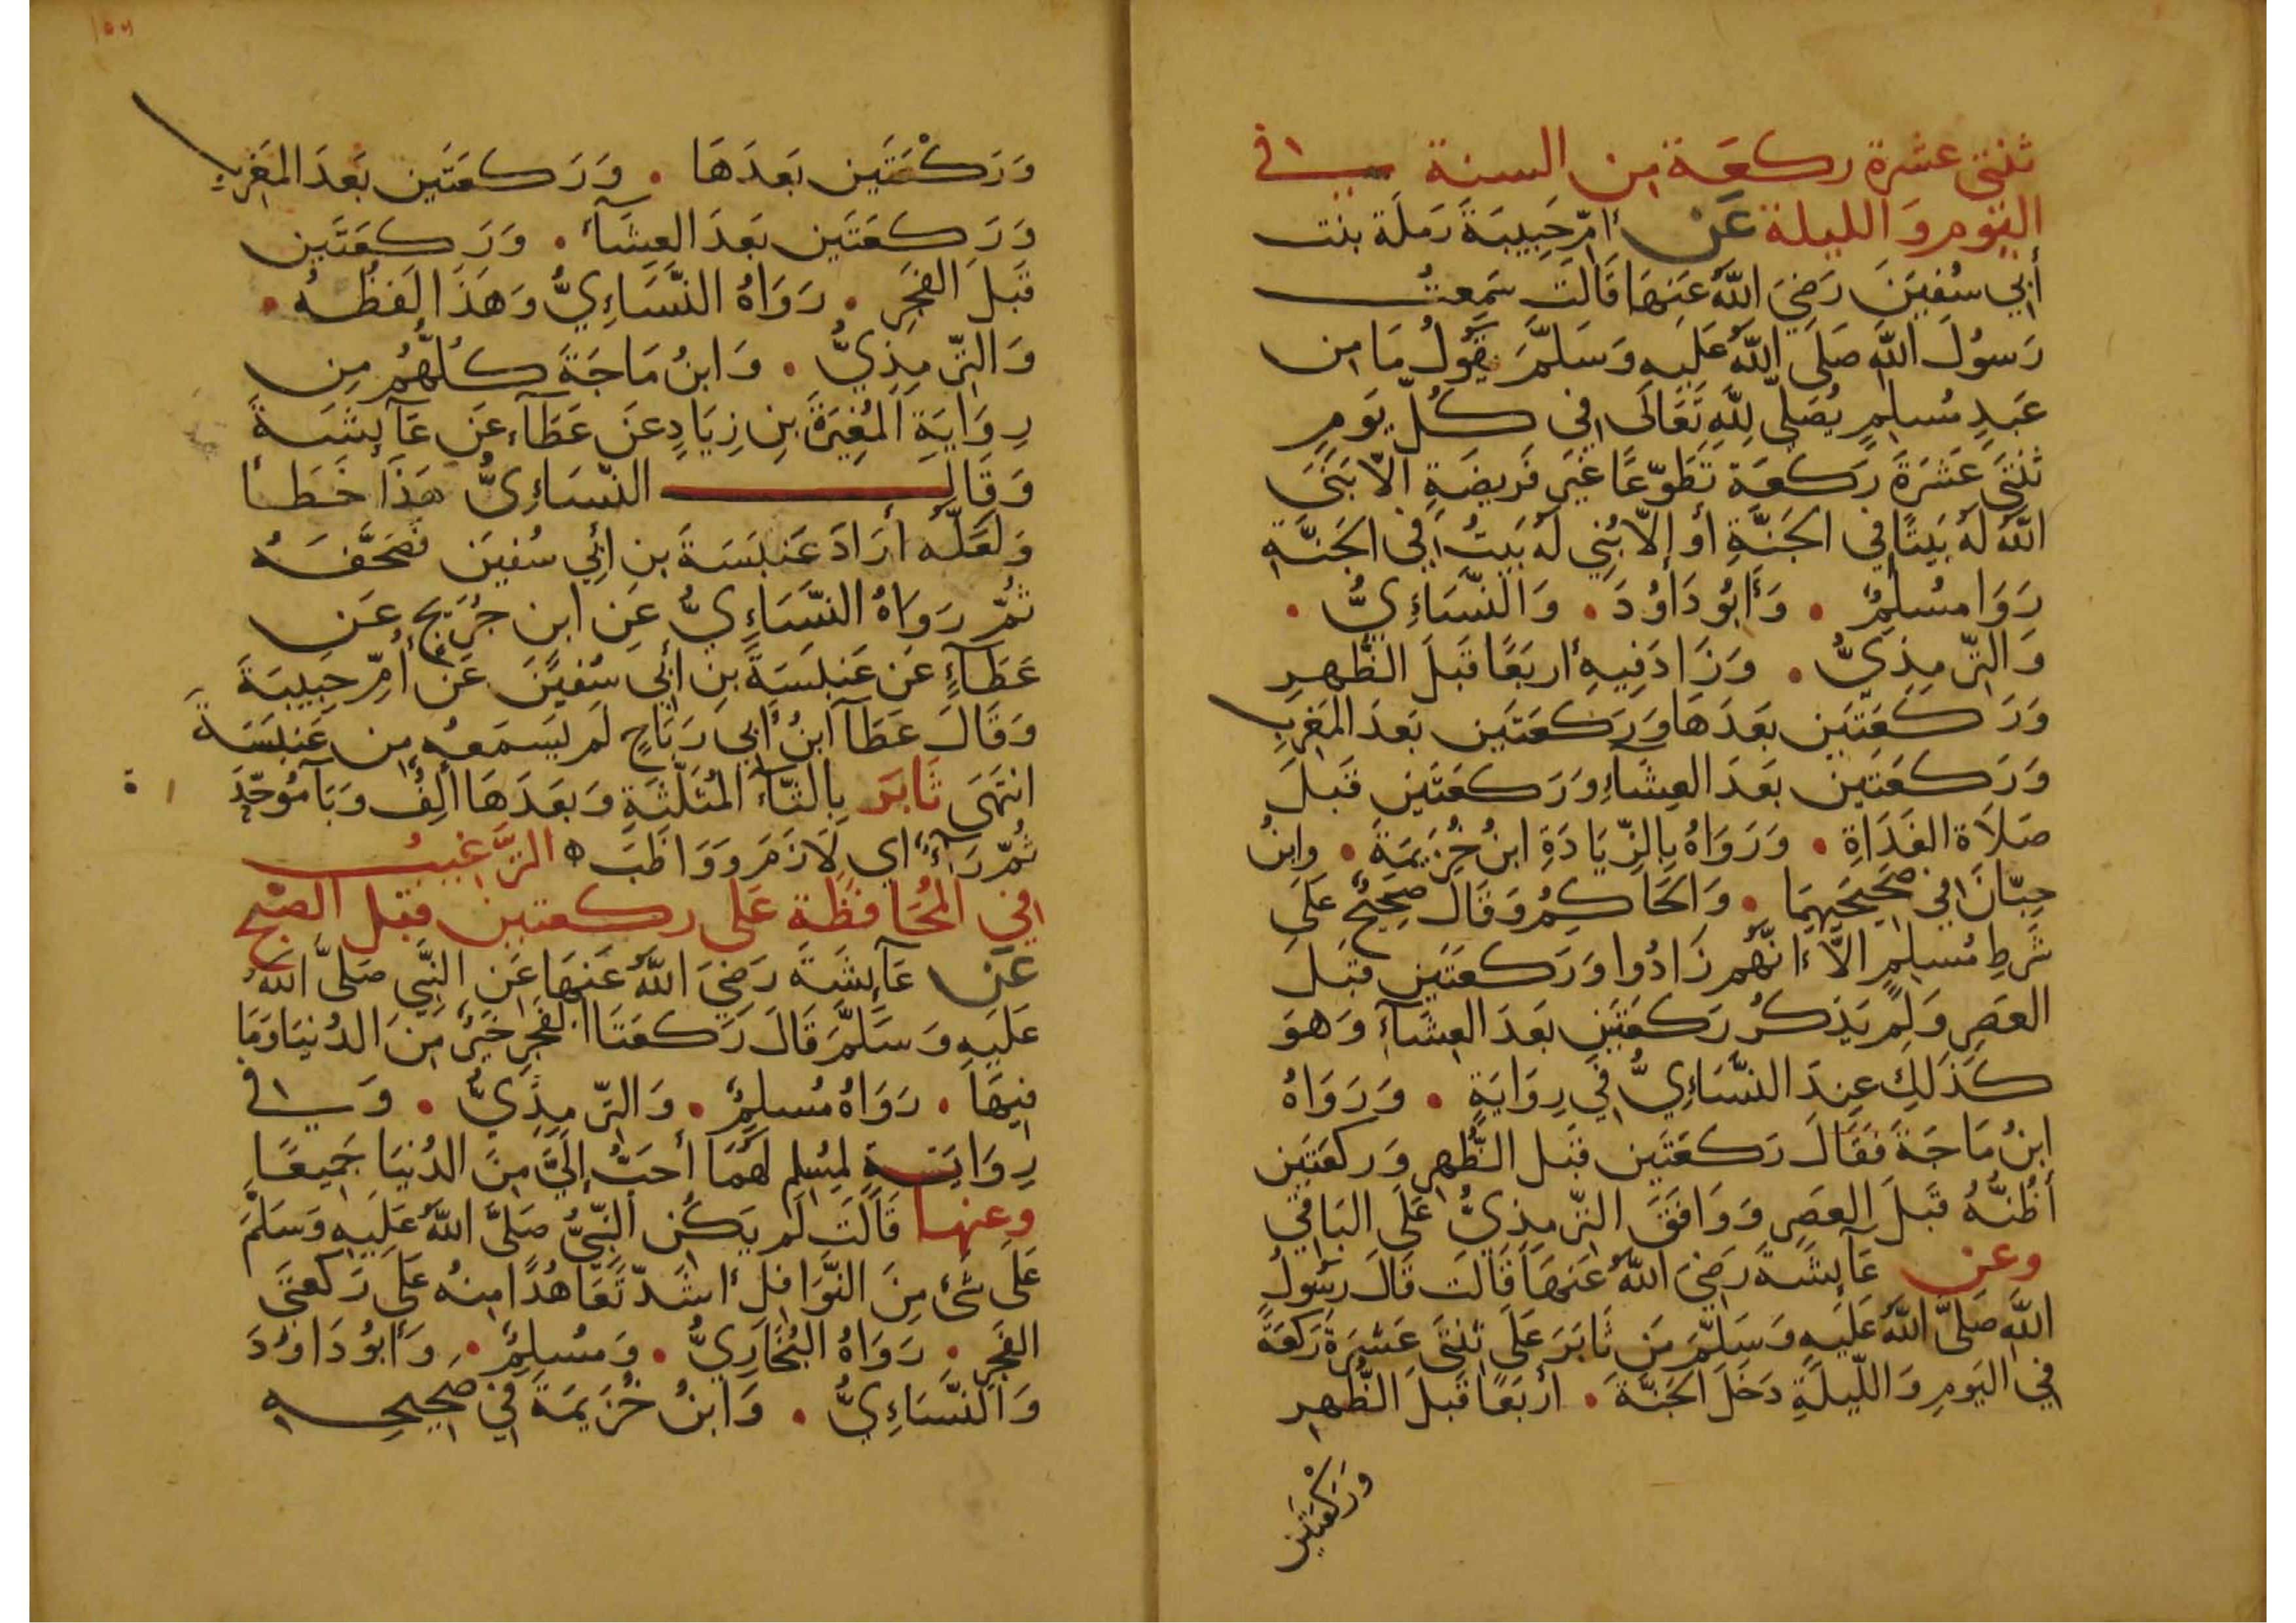 ثنتي عشرة ركعة من السنة في
اليوم والليلة عَن أمّ حَبِيبَةَ رَملَة بنت
أبي سُفيَنَ رَضِيَ اللَّهُ عَنهَا قَالَت سَمِعتُ
رَسُولَ اللَّهِ صَلَّى اللَّهُ عَلَيهِ وَسَلَّمَ يَقُولُ مَا من
عَبدٍ مُسلِمٍ يُصَلّي لِلَّهِ تَعَالَى في كُلّ يَومٍ
ثنتَي عَشَرَةَ رَكعَة تَطَوّعًا غَيرَ فَريضَةٍ الّا بَنَى
اللَّهُ لَهُ بَيتًا في الجَنَّةِ أو إلّا بُنِي لَهُ بَيتٌ في الجَنَّةِ
رَوَا مُسلِمٌ . وَأَبُو دَاوُدَ . وَالنَّسَاءِيُّ .
وَالتّرمِذِيُّ . وَزَادَ فِيهِ أربَعًا قَبلَ الظُّهرِ
وَرَكعَتَين بعَدَهَا وَرَكعَتَين بَعدَ المَغربِ
وَرَكعَتَين بعَدَ العِشَاءِ وَرَكعَتَين قَبلَ
صَلَاة الغَدَاةِ . وَرَوَاهُ بِالزّيَادَةِ ابنُ خُزَيمَةَ . وابنُ
حِبّانَ في صَحِيحَيهِمَا . وَالحَاكِمُ وَقَالَ صَحِيحٌ عَلَى
شَرطِ مُسلِمٍ الَّا انَّهُم زَادُوا وَرَكعَتَين قَبلَ
العَصرِ وَلَم يَذكُر رَكعَتَينِ بَعدَ العِشَاءِ وَهوَ
كَذَلِكَ عِندَ النَّسَاءِيُّ في رِوَايَةٍ . وَرَوَاهُ
ابنُ مَاجَةَ فَقَالَ رَكعَتَين قَبل الظُّهرِ وَركعَتَين
أظُنُّهُ قَبلَ العَصرِ وَوَافَقَ التّرمِذِيُّ عَلَى البَاقي
وعن عَآئشَةَ رَضِيَ اللَّهُ عَنهَا قَالَت قَالَ رَسُولُ
اللَّهِ صَلَّى اللَّهُ عَلَيهِ وَسَلّمَ مَن ثَابَرَ عَلَى ثنتَي عَشرَةَ رَكعَةً
في اليَومِ وَاللّيلَةِ دَخَلَ الجَنَّةَ . أربَعًا قَبلَ الظُّهرِ
وَرَكْعَتَيْنِ
١٥٦
وَرَكْعَتَين بَعدَهَا . وَرَكعَتَين بَعدَ المَغربِ
وَرَكعَتَين بَعدَ العِشَآءِ . وَرَكعَتَين
قَبلَ الفَجرِ . رَوَاهُ النَّسَاءِيُّ وَهَذَا لَفظُهُ .
وَالتّرمِذِيُّ . وَابنُ مَاجَةَ كُلُّهُم مِن
رِوَايَةِ المُغِيرَةَ بنِ زِيَادٍ عَن عَطَآءٍ عَن عَآئشَةَ
وَقَالَ النّسَاءِيُّ هَذَا خَطَأ
وَلَعَلَّهُ أرَادَ عَنبَسَةَ بن أبي سُفيَن فَصَحَّفَهُ
ثُمّ رَوَاهُ النَّسَاءِيُّ عَن ابن جُرَيجٍ عَن
عَطَآءٍ عَن عَنبَسَةَ بنَ أبي سُفيَنَ عَن أمّ حَبِيبَةَ
وَقَالَ عَطَآ ابنُ أبي رَبَاحٍ لَم يَسمَعهُ من عَنبَسَةَ
انتَهَى ثَابَرَ بِالثّآءِ المُثَلّثَةِ وَبعَدَهَا ألِفٌ وَبَآ مُوَحّدَة
ثُمّ رَآءٌ اي لَازَمَ وَوَاظَبَ ه التَّرغيبُ
في المُحَافظَة عَلى ركعتين قبل الصّبح
عَن عَآئشَةَ رَضِيَ اللَّهُ عَنهَا عَن النَّبِي صَلَّى اللَّهُ
عَلَيهِ وَسَلَّمَ قَالَ رَكعَتَا الفَجرِ خَيرٌ مِنَ الدُنيَا وَمَا
فِيهَا . رَوَاهُ مُسلِمٌ . وَالتّرمِذِيُّ . وَفي
رِوَايَةٍ لِمُسلِم لَهُمَا أحَبُّ إلَيَّ مِنَ الدُنيَا جَمِيعًا
وعنها قَالَت لَم يَكُن النّبيُّ صَلَّى اللَّهُ عَلَيهِ وَسَلَّمَ
عَلَى شَئٍ مِنَ النَّوَافلِ أشَدّ تَعَاهُدًا مِنهُ عَلَى رَكعتَي
الفَجرِ . رَوَاهُ البُخَارِيُّ . وَمُسلِمٌ . وَأبُو دَاوُدَ
وَالنَّسَاءِيُّ . وَابنُ خُزَيمَةَ في صَحِيحِهِ